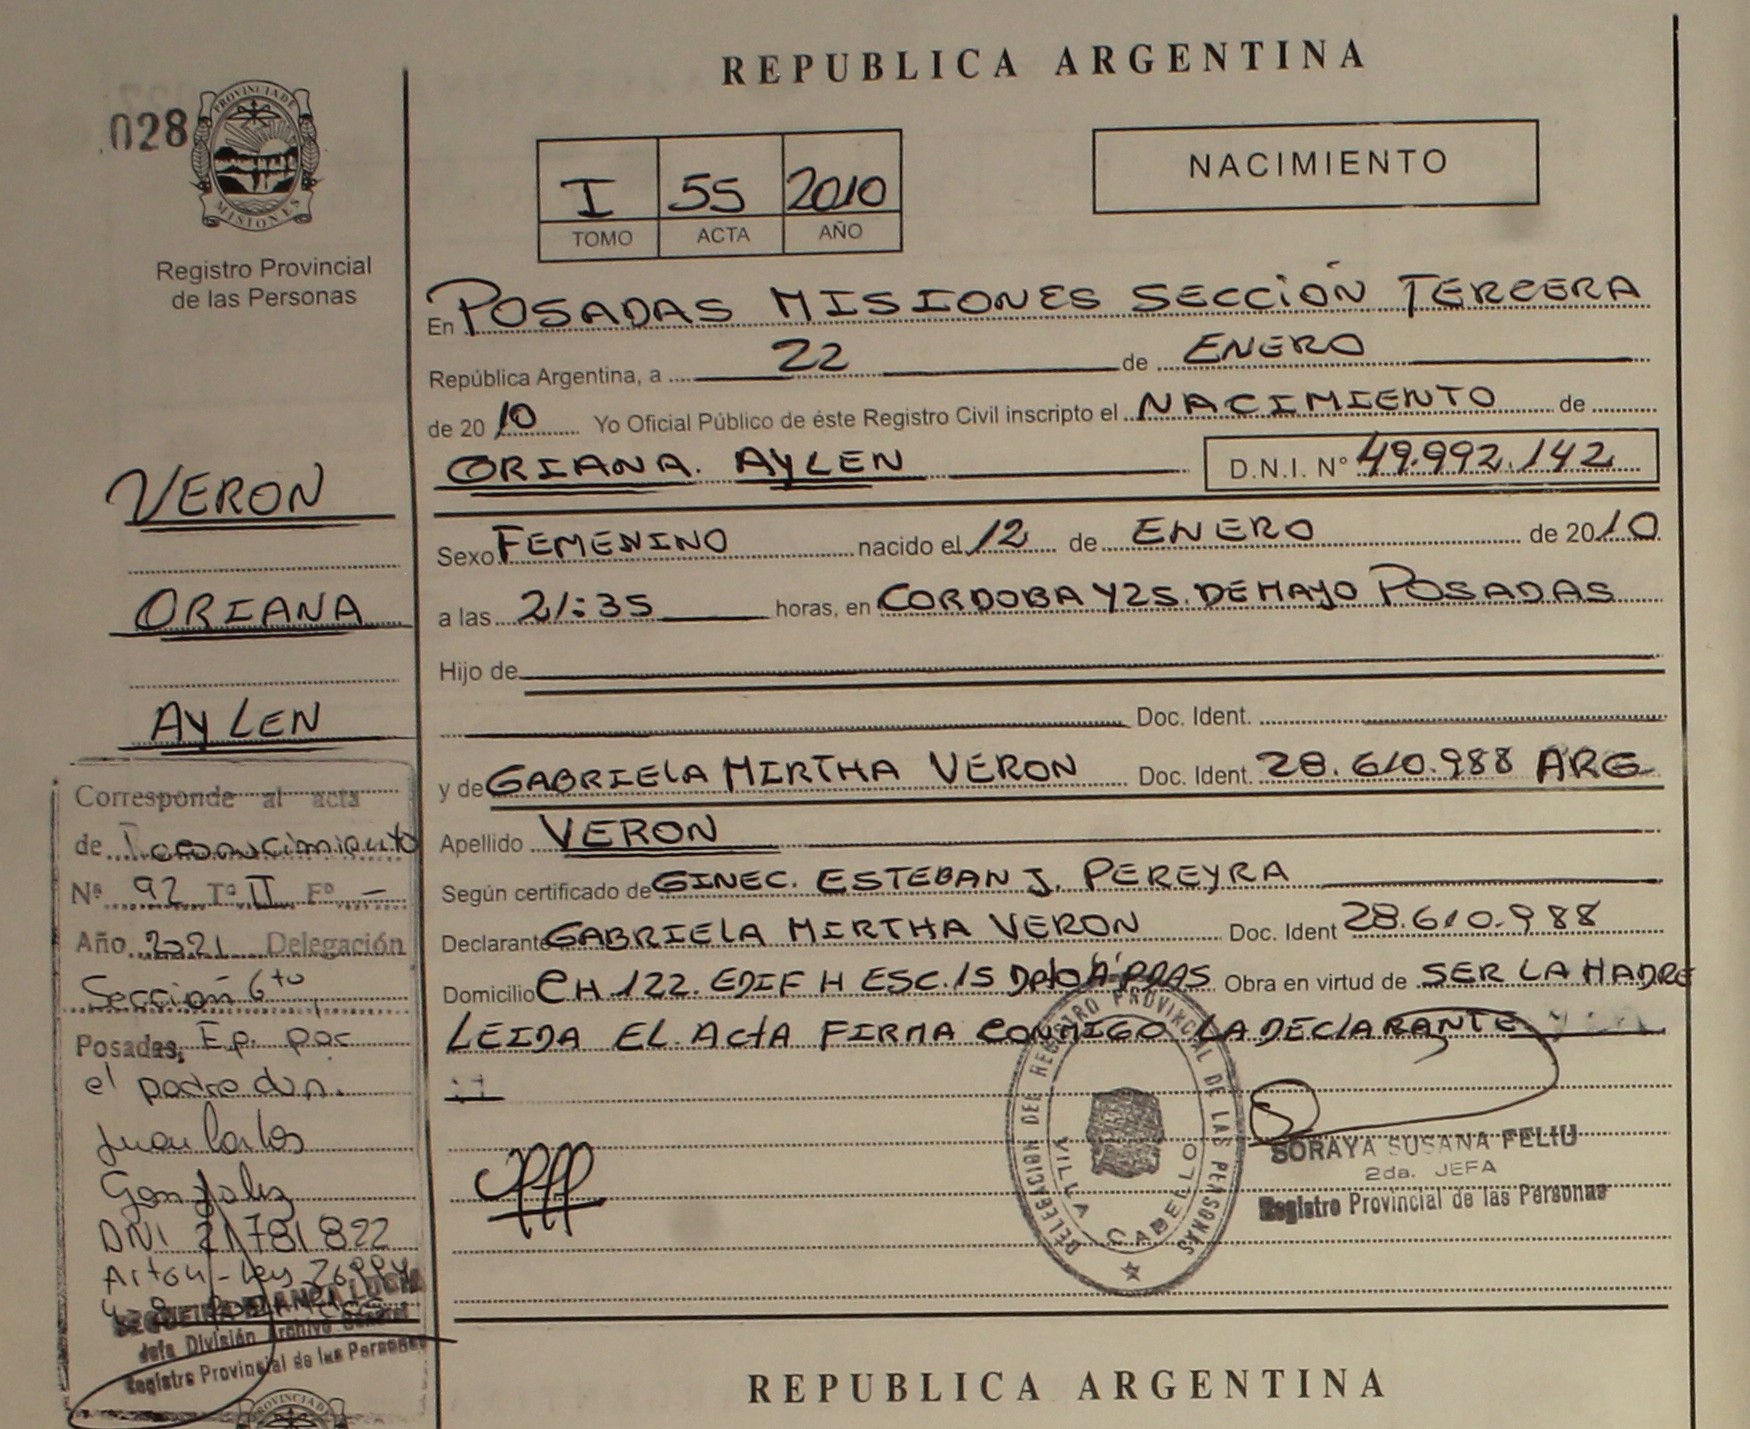 REPUBLICA ARGENTINA
028
PROVINCIA DE
MISIONES
Registro Provincial
de las Personas
I 55 2010
TOMO ACTA AÑO
NACIMIENTO
En POSADAS MISIONES SECCIÓN TERCERA
República Argentina, a 22 de ENERO
de 2010 Yo Oficial Público de éste Registro Civil inscripto el NACIMIENTO de
ORIANA. AYLEN D.N.I. Nº 49.992.142
Sexo FEMENINO nacido el 12 de ENERO de 2010
a las 21:35 horas, en CORDOBA Y 25. DE MAYO POSADAS
Hijo de
Doc. Ident.
y de GABRIELA MIRTHA VERON Doc. Ident. 28.610.988 ARG
Apellido VERON
Según certificado de GINEC. ESTEBAN J. PEREYRA
Declarante GABRIELA MIRTHA VERON Doc. Ident 28.610.988
Domicilio CH 122. EDIF H ESC. 15 Obra en virtud de SER LA MADRE
LEIDA EL ACTA FIRMA CONMIGO LA DECLARANTE
VERON
ORIANA
AYLEN
Corresponde al acta
de Reconocimiento
Nº 92 Tº II Fº —
Año 2021 Delegación
Sección 6to
Posadas, Ep. por
el padre don.
Juan Carlos
Gonzalez
DNI 21781822
Ley
SEGUEIRA BLANCA LUCIA
Jefa División Archivo General
Registro Provincial de las Personas
DELEGACION DEL REGISTRO PROVINCIAL DE LAS PERSONAS
VILLA CABELLO
SORAYA SUSANA FELIU
2da. JEFA
Registro Provincial de las Personas
REPUBLICA ARGENTINA
PROVINCIA DE